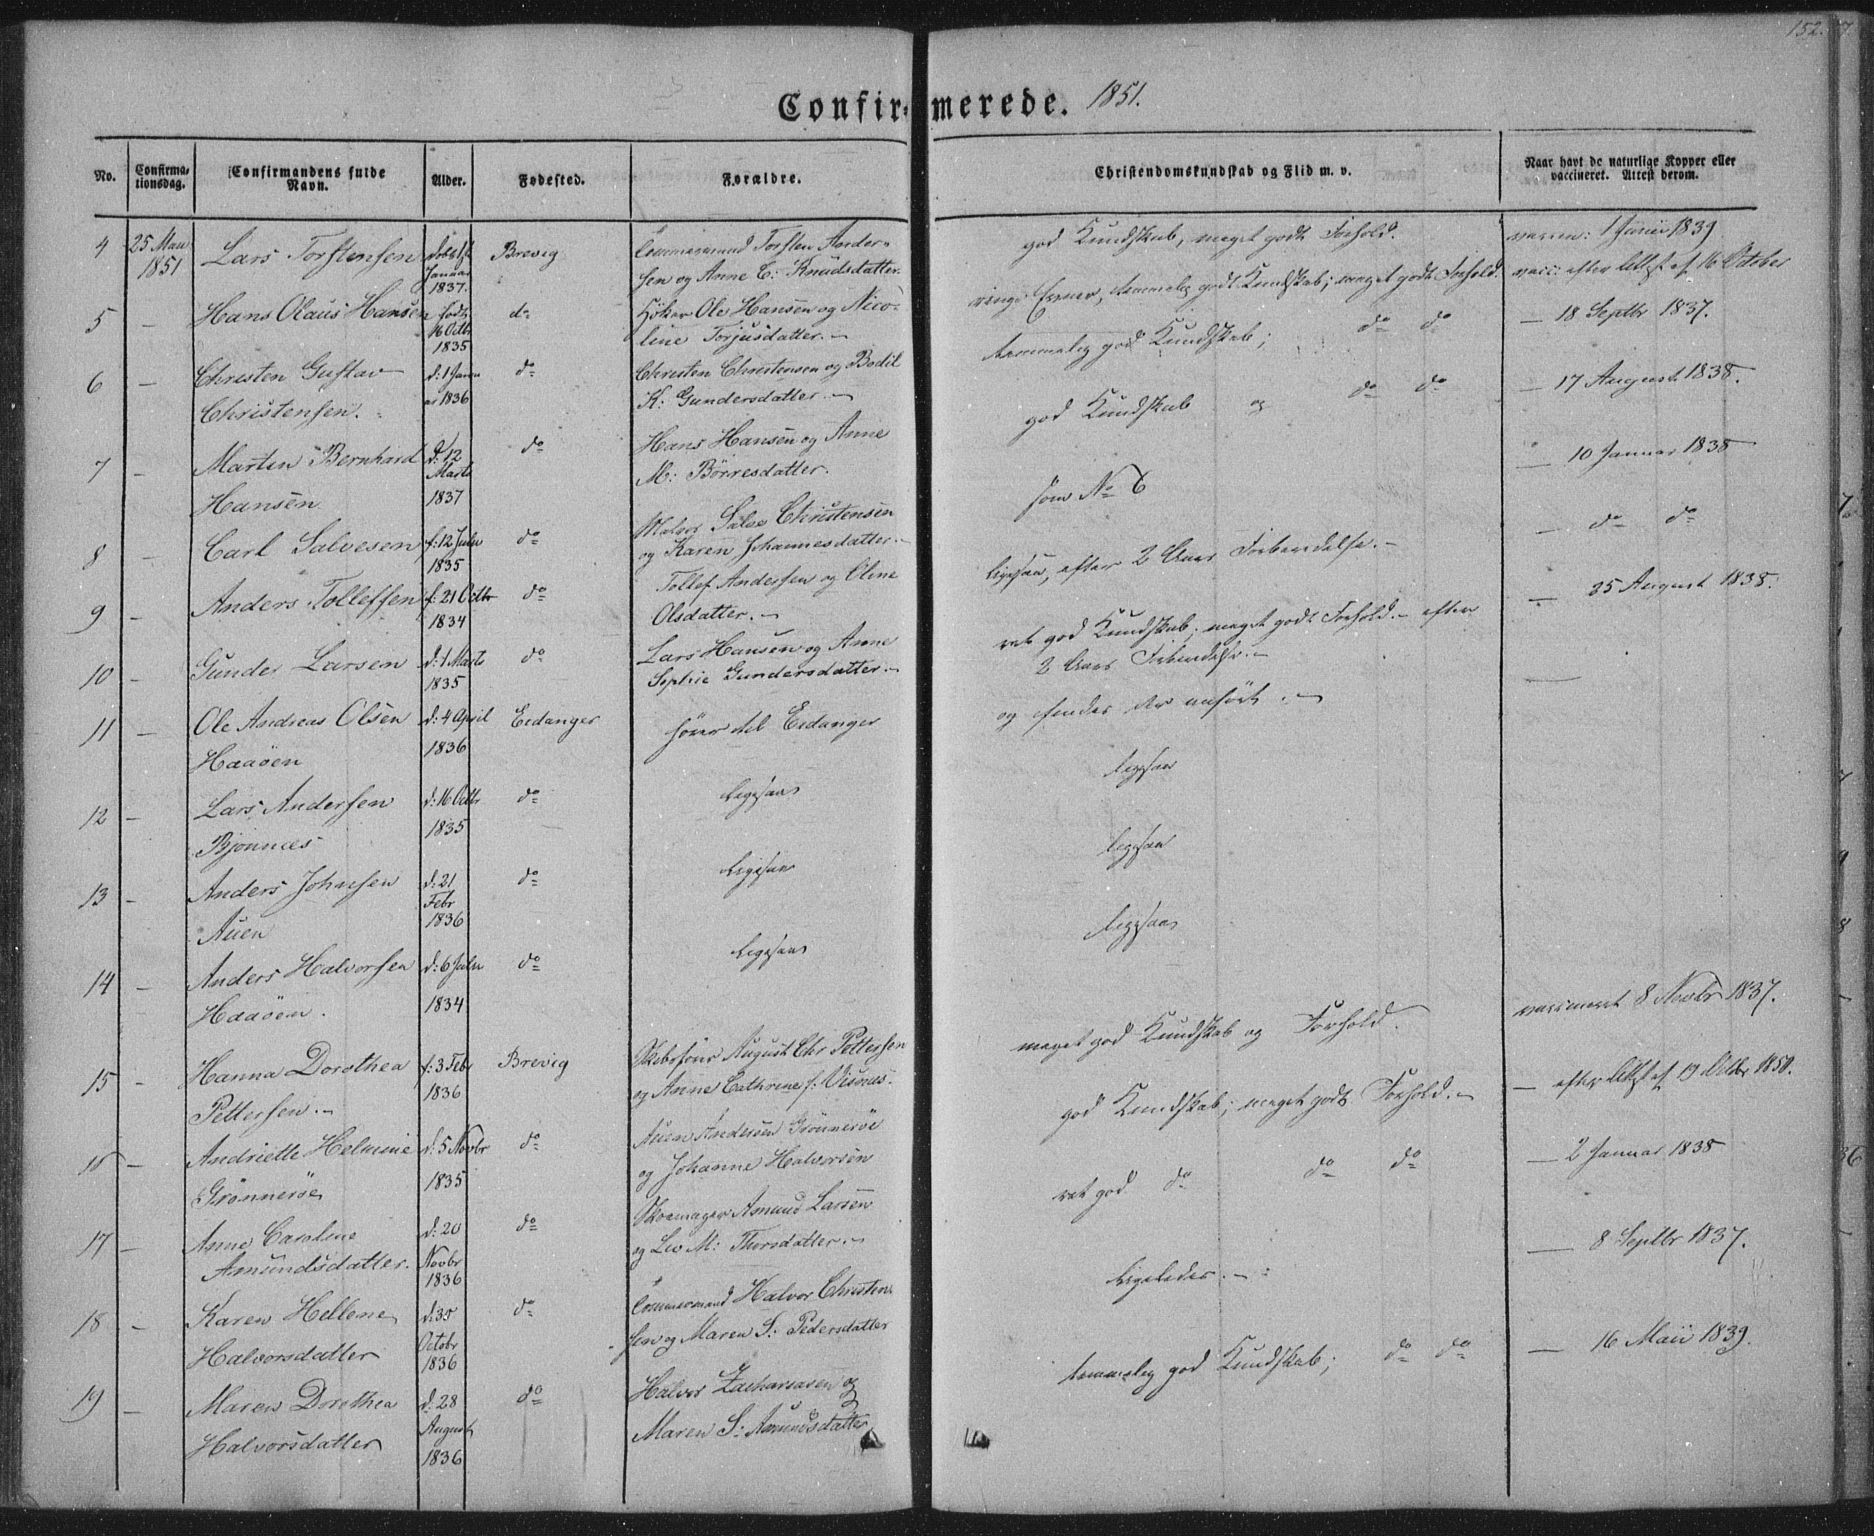 152.
Confirmerede. 1851.
No.
Confirma-
tionsdag.
Confirmandens fulde
Navn.
Alder.
Fødested.
Forældre.
Christendomskundskab og Flid m. v.
Naar havt de naturlige Kopper eller
vaccineret. Attest derom.
4 25 Mau 1851 Lars Torstensen
Januar
1837.
Brevig
Torsten Ander-
sen og Anne C: Knudsdatter
god Kundskab, meget godt Forhold.
1 Junii 1839
5 - Hans Olaus Hansen født
16 Octbr
1835
do
Høker Ole Hansen og Nico-
line Torjusdatter. -
ringe Evner, temmelig godt Kundskab; meget godt Forhold
vacc: efter Attst af 16 October
6 - Christen Gustav
Christensen.
d: 1 Janu
ar 1836
do
Christen Christensen og Bodil
K: Gundersdatter -
temmelig god Kundskab; do do
- 18 Septbr 1837.
7 - Marten Bernhard
Hansen
d: 12
Marts
1837
do
Hans Hansen og Anne
M: Börresdatter.
god Kundskab og do do
- 17 August 1838.
8 - Carl Salvesen
f: 12 Julu
1835
do
Salve Christensen
og Karen Johannesdatter. -
som No 6
- 10 Januar 1838
9 - Anders Tollefsen
f: 21 Octbr
1834
do
Tollef Andersen og Oline
Olsdatter. -
ligesaa, efter 2 Aars Forberedelse. -
- do do
10 - Gunder Larsen
d: 1 Marts
1835
do
Lars Hansen og Anne
Sophie Gundersdatter -
ret god Kundskab, meget godt Forhold. - efter
2 Aars Forberedelse. -
- 25 August 1838.
11 - Ole Andreas Olsen
Haaöen
d: 4 April
1836
Eidanger
hører til Eidanger
og findes der anført. -
12 - Lars Andersen
Bjönnes
d: 16 Octbr
1835
do
ligesaa
ligesaa
13 - Anders Johnsen
Auen
d: 21
Febr
1836
do
ligesaa
ligesaa
14 - Anders Halvorsen
Haaöen.
d: 6 Julu
1834
do
ligesaa
ligesaa
15 - Hanna Dorothea
Pettersen. -
f: 3 Feb
1836
Brevig
August Chr Pettersen
og Anne Cathrine f: Visnes.
meget god Kundskab og Forhold.
vaccineret 8 Novbr 1837.
16 - Andriette Helmine
Grönneröe
d: 5 Novbr
1835
do
Auen Andersen Grönneröe
og Johanne Halvorsen
god Kundskab; meget godt Forhold. -
- efter Attst af 19 Octbr 1850.
17 - Anne Caroline
Amundsdatter.
d: 20
Novbr
1836
do
Skoemager Amund Larsen
og Liv M: Thorsdatter. -
ret god do do do
- 2 Januar 1838
18 - Karen Hellene
Halvorsdatter
October
1836
do
Halvor Christen-
sen og Maren S: Pedersdatter
ligeledes. -
- 8 Septbr 1837.
19 - Maren Dorothea
Halvorsdatter
d: 28
August
1836
do
Halvor Zachariasen og
Maren S: Amundsdatter
temmelig god Kundskab; do do
- 16 Maii 1839.